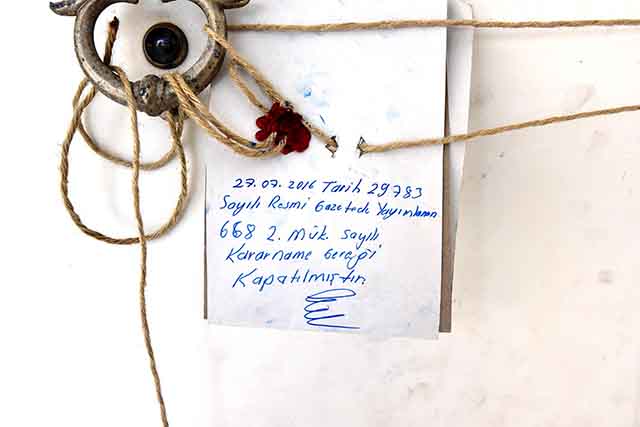 27.07.2016 Tarih 29783
Sayılı Resmi Gazetede Yayımlanan
668 2. Mük. Sayılı
Kararname Gereği
Kapatılmıştır